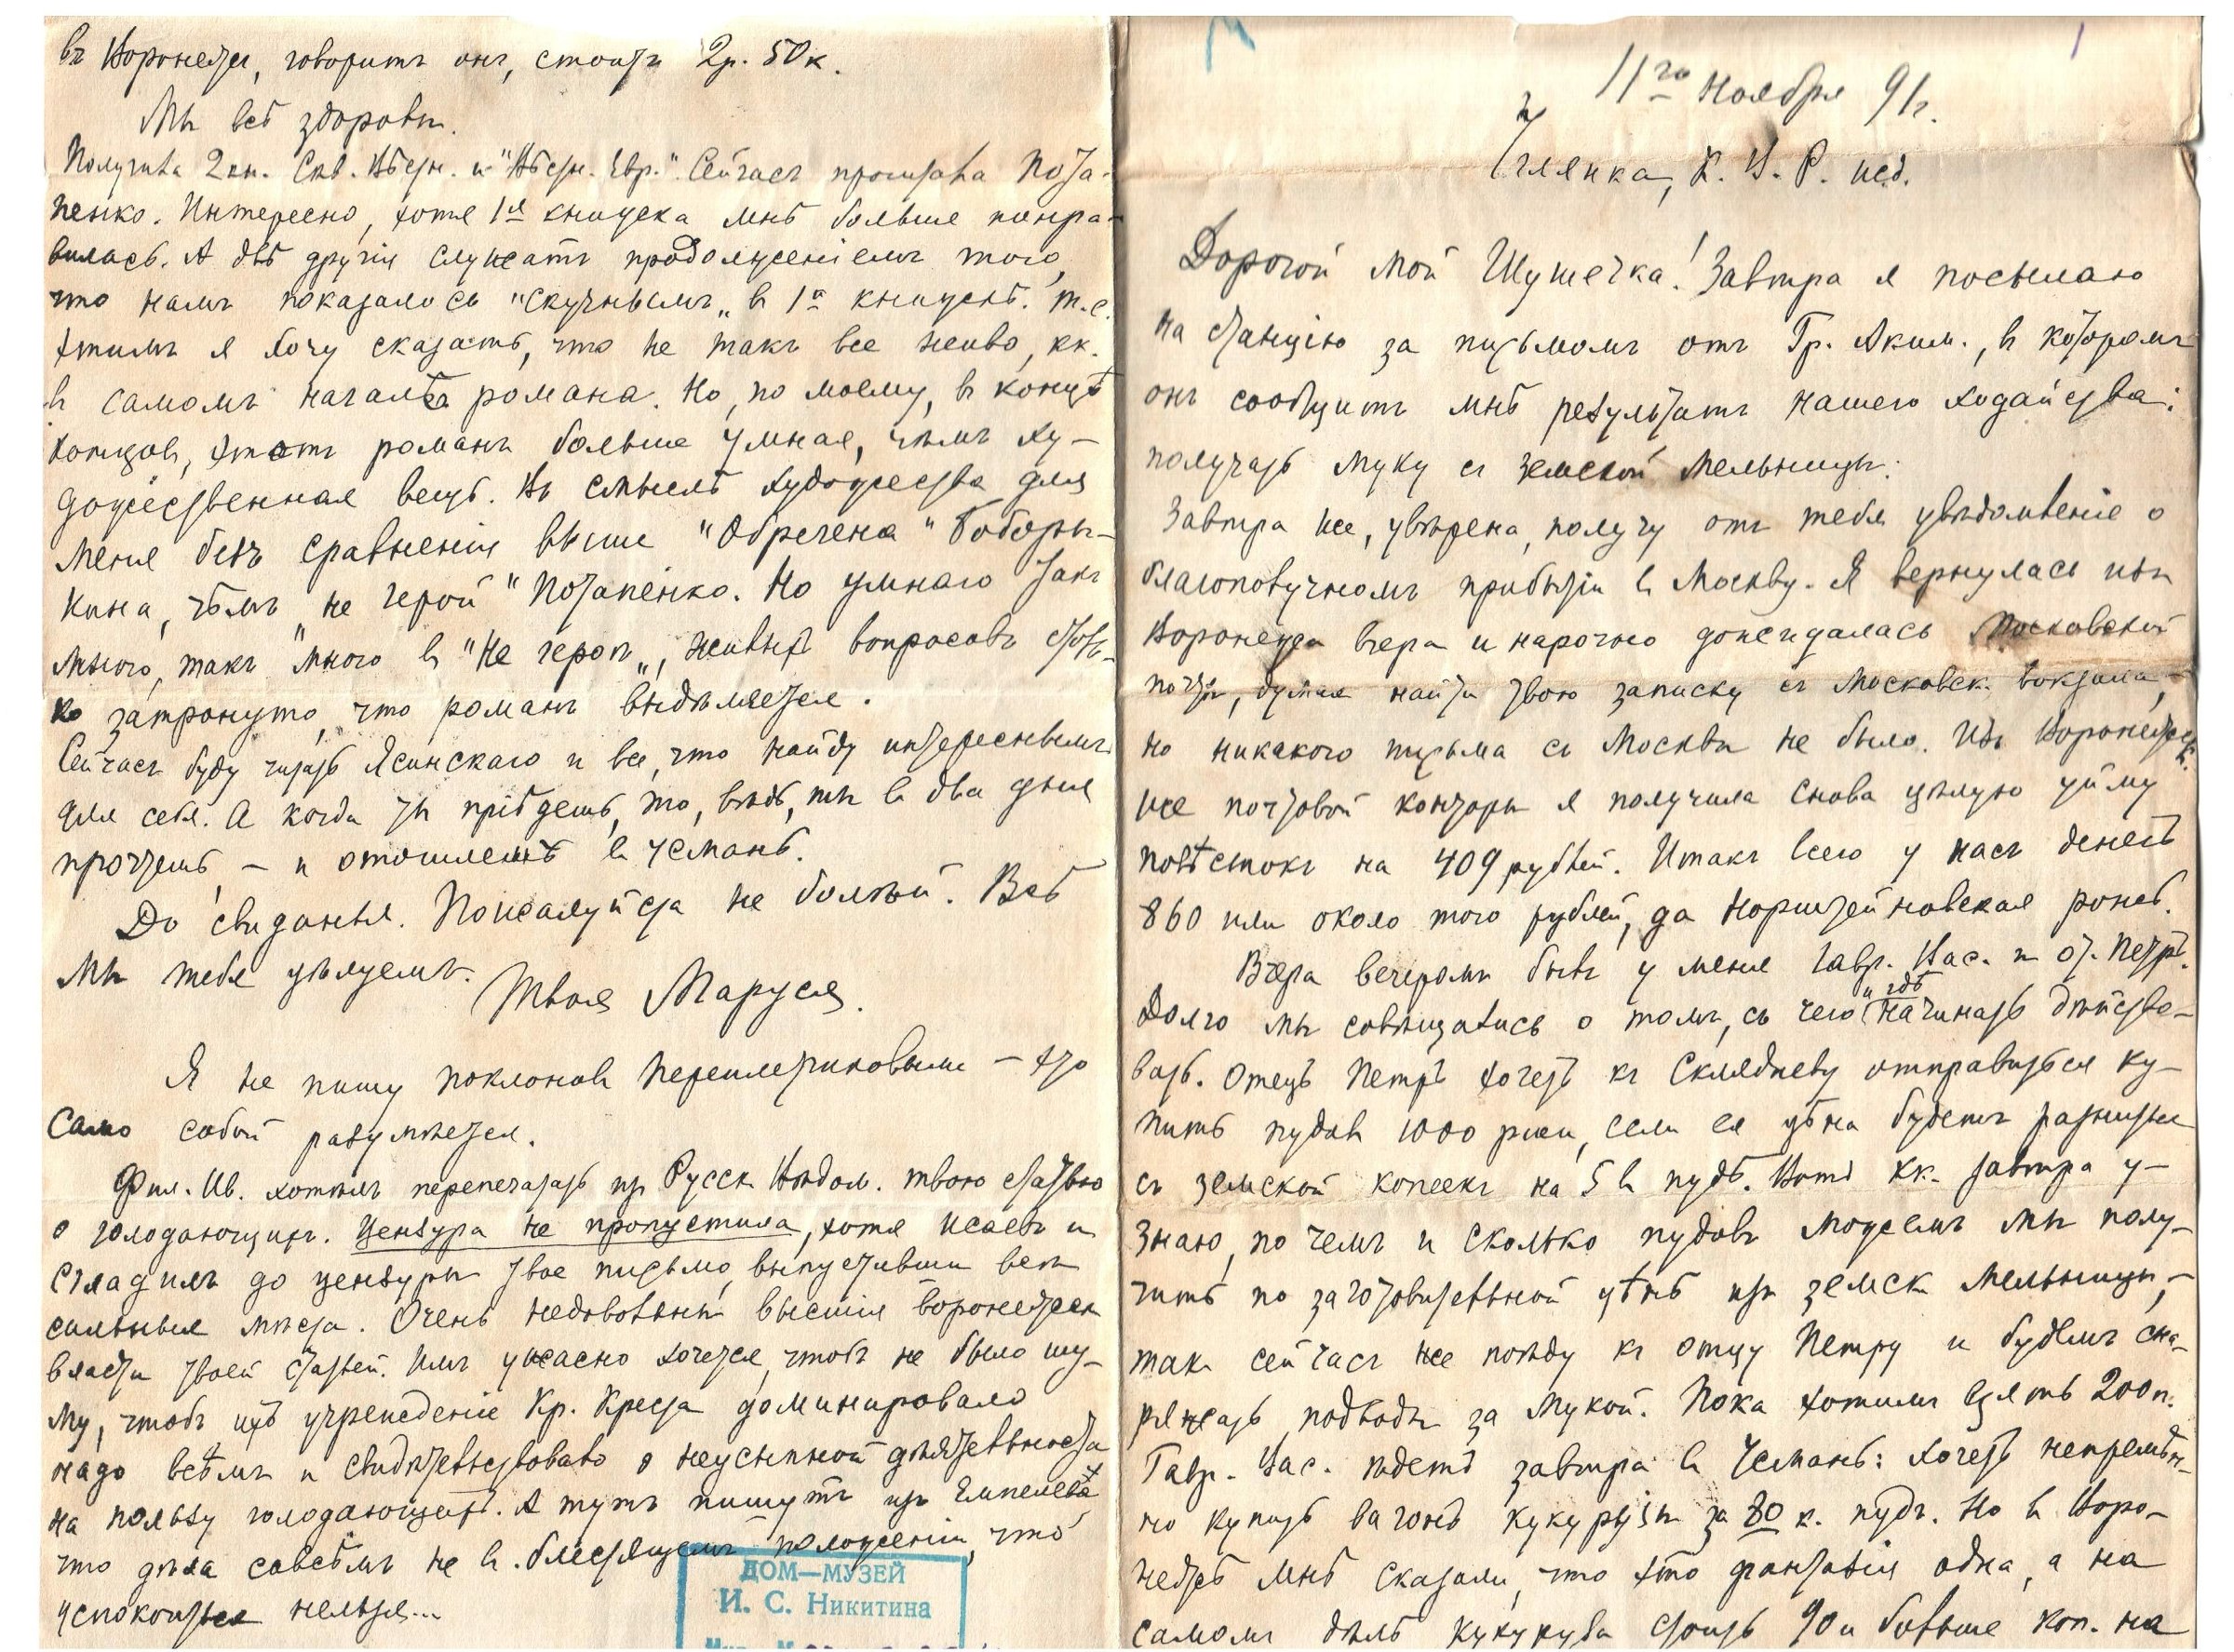 11го Ноября 91г.
Углянка, К. В. Р. жед.
Дорогой мой Шушечка! Завтра я посылаю
на станцію за письмомъ отъ Гр. Яким., в которомъ
онъ сообщитъ мнѣ результатъ нашего ходайства:
получать муку съ земской мельницы.
Завтра же, увѣрена, получу отъ тебя увѣдомленіе о
благополучномъ прибытіи в Москву. Я вернулась изъ
Воронежа вчера и нарочно дожидалась Московской
почты, думая найти твою записку съ Московск. вокзала,
но никакого письма съ Москвы не было. Изъ Воронежск.
же почтовой конторы я получила снова цѣлую уйму
повѣстокъ на 409 рублей. Итакъ всего у насъ денегъ
860 или около того рублей, да рожь.
Вчера вечеромъ былъ у меня Гавр. Вас. и от. Петръ.
Долго мы совѣщались о томъ, съ чего и гдѣ начинать дѣйство-
вать. Отецъ Петръ хочетъ къ Склядневу отправиться ку-
пить пудовъ 1000 ржи, если ея цѣна будетъ разниться
съ земской копеекъ на 5 в пудѣ. Вотъ кк. завтра у-
знаю, по чемъ и сколько пудовъ можемъ мы полу-
чить по заготовительной цѣнѣ изъ земск. мельницы, –
такъ сейчасъ же поѣду къ отцу Петру и будемъ сна-
ряжать подводы за мукой. Пока хотимъ взять 200 п.
Гавр. Вас. ѣдетъ завтра в Усмань: хочетъ непремѣн-
но купить вагонъ кукурузы за 80 к. пудъ. Но в Воро-
нежѣ мнѣ сказали, что это фантазія одна, а на
самомъ дѣлѣ кукуруза стоитъ 90 и больше коп. на
въ Воронежѣ, говоритъ онъ, стоитъ 2р. 50к.
Мы всѣ здоровы.
Получила 2 кн. Сѣв. Вѣстн. и "Вѣстн. Евр.". Сейчасъ прочитала Пота-
пенко. Интересно, хотя 1я книжка мнѣ больше понра-
вилась. А двѣ другія служатъ продолженіемъ того,
что намъ показалось "скучнымъ" в 1й книжкѣ. т.е.
этимъ я хочу сказать, что не такъ все живо, кк.
в самомъ началѣ романа. Но, по моему, в концѣ
концовъ, этотъ романъ больше умная, чѣмъ ху-
дожественная вещь. Въ смыслѣ художества для
меня безъ сравненія выше "Обречена" Боборы-
кина, чѣмъ "не герой" Потапенко. Но умнаго такъ
много, такъ много в "Не героѣ", живыхъ вопросовъ столь-
ко затронуто, что романъ выдѣляется.
Сейчасъ буду читать Ясинскаго и все, что найду интереснымъ
для себя. А когда ты пріѣдешь, то, вѣдь, ты в два дня
прочтешь, – и отошлешь в Усмань.
До свиданья. Пожалуйста не болѣй. Всѣ
мы тебя цѣлуемъ.
Твоя Маруся.
Я не пишу поклоновъ – это
само собой разумѣется.
Фил. Ив. хотѣлъ перепечатать изъ Русск. Вѣдом. твою статью
о голодающихъ. Цензура не пропустила, хотя Исаевъ и
сгладилъ до цензуры твое письмо, выпустивши всѣ
сильныя мѣста. Очень недовольны высшія воронежск.
власти твоей статьей. Имъ ужасно хочется, чтобъ не было шу-
му, чтобъ ихъ учрежденіе Кр. Креста доминировало
надо всѣмъ и свидѣтельствовало о неусыпной дѣятельности
на пользу голодающихъ. А тутъ пишутъ изъ
что дѣла совсѣмъ не в блестящемъ положеніи, что
успокоиться нельзя...
ДОМ—МУЗЕЙ
И. С. Никитина